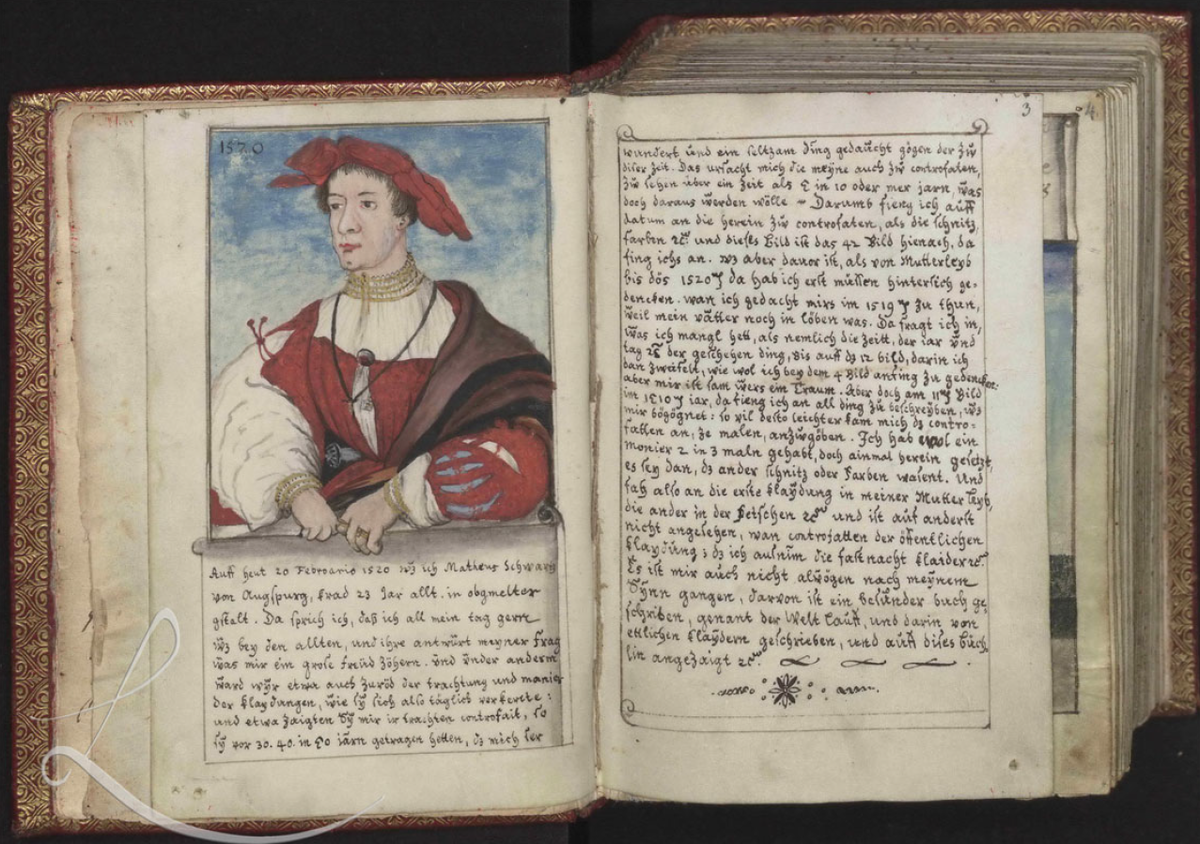 1520
Auff heut 20 Februario 1520 wz ich Matheus Schwartz
von Augspurg, krad 23 Jar allt. in obgmelter
gstalt. Da sprich ich, daß ich all mein tag gern
wz bey den allten, und ihre antwürt meyner frag
was mir ein große freüd zöhern. und ünder anderm
ward wyr etwa auch zuröd der trachtung und manier
der klaydungen, wie sy sich also täglich verkerte:
und etwa zaigten sy mir ir trachten controfait, so
sy vor 30. 40. in 50 jarn getragen hetten, dz mich ser
3
wundert und ein seltzam ding gedaücht gögen der zu
diser zeit. Das ursacht mich die meyne auch zu controfaten,
zu sehen über ein zeit als 5 in 10 oder mer jarn, was
doch daraus werden wölle ~ Darumb fieng ich auff
datum an die herein zu controfaten, als die schnitz,
farben ꝛc. und dieses bild ist das 42 bild hienach, da
fing ichs an. wz aber davor ist, als von Mutterleyb
bis dös 1520 da hab ich erst müssen hintersich ge-
dencken. wan ich gedacht mirs im 1519 zu thun,
weil mein vätter noch in löben was. Da fragt ich in,
was ich mangl hett, als nemlich die zeitt, der iar und
tag ꝛc der geschehen ding, bis auff dz 12 bild, darin ich
dan zwäfelt, wie wol ich bey dem 4 bild anfing zu gedencken:
aber mir ist sam wers ein Traum. Aber doch am 11 bild
im 1510 jar, da fieng ich an all ding zu beschreyben, wz
mir bögögnet: so vil desto leichter kam mich dz contro-
fatten an, ze malen, anzugöben. Ich hab wol ein
monier 2 in 3 maln gehabt, doch ainmal herein gesetzt,
es sey dan, dz ander schnitz oder farben waient. Und
fah also an die erste klaydung in meiner Mutter leyb,
die ander in der fetschen ꝛc und ist auf anderst
nicht angesehen, wan controfatten der öffentlichen
klaydung; dz ich ausnim die fastnacht klaider ꝛc.
Es ist mir auch nicht alwögen nach meynem
Synn gangen, darvon ist ein besünder buch ge-
schriben, genant der Welt lauff, und darin von
ettlichen klaydern geschrieben, und auff dises büch
lin angezaigt ꝛc.
4